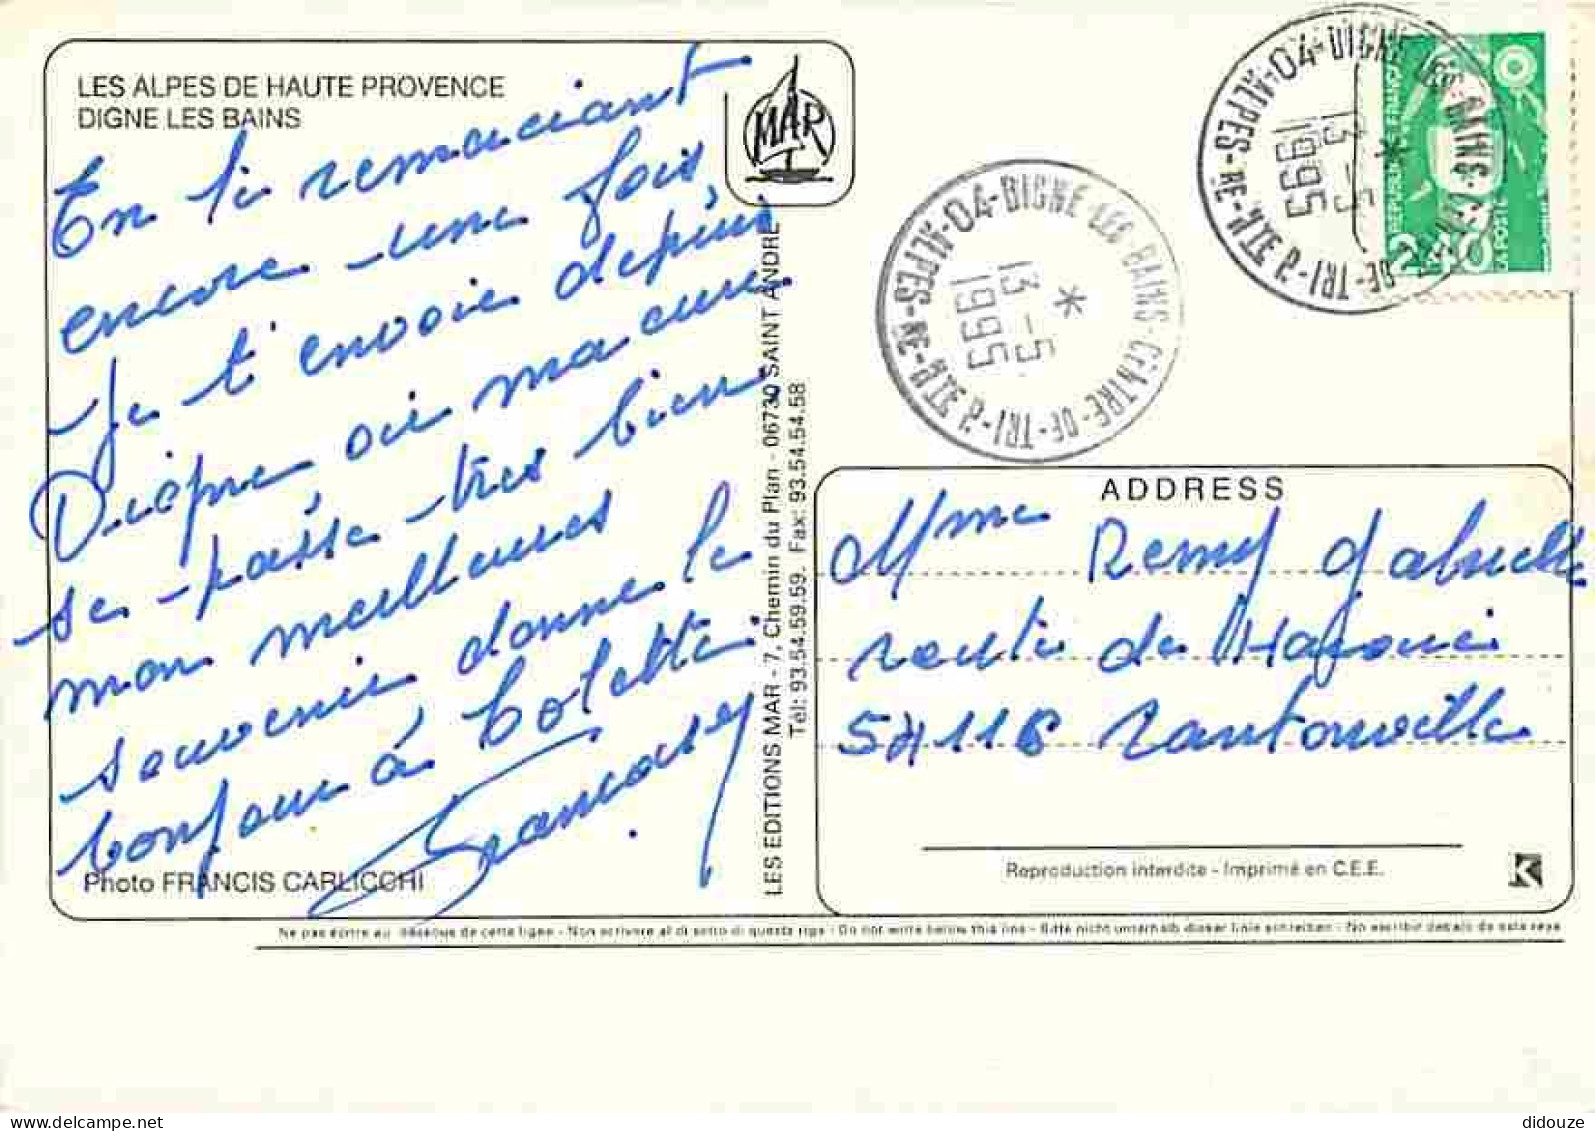 LES ALPES DE HAUTE PROVENCE
DIGNE LES BAINS
MAR
En te remerciant
encore une fois,
Je t'envoie depuis
Digne où ma cure
se passe très bien
mon meilleures
souvenir donne le
bonjour à Colette.
Photo FRANCIS CARLICCHI
LES EDITIONS MAR - 7, Chemin du Plan - 06730 SAINT ANDRE
Tél: 93.54.59.59. Fax: 93.54.54.58
04-DIGNE-LES-BAINS-CENTRE-DE-TRI
ALPES-DE-HTE P.
13-5
1995
*
04-DIGNE-LES-BAINS-CENTRE-DE-TRI
ALPES-DE-HTE P.
13-5
1995
*
REPUBLIQUE FRANÇAISE
2,40
LA POSTE
ADDRESS
Mme Remy Gabrielle
route de
54118
Reproduction interdite - Imprimé en C.E.E.
K
Ne pas écrire au dessous de cette ligne - Non scrivere al di sotto di questa riga - Do not write below this line - Bitte nicht unterhalb dieser linie schreiben - No escribir debajo de esta raya
delcampe.net
didouze